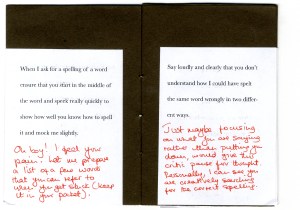 When I ask for a spelling of a word
ensure that you start in the middle of
the word and speak really quickly to
show how well you know how to spell
it and mock me slightly.
Oh boy! I feel your
pain! Let me prepare
a list of a few words
that you can refer to
when you get stuck (keep
it in your pocket).
Say loudly and clearly that you don't
understand how I could have spelt
the same word wrongly in two differ-
ent ways.
Just maybe focusing
on what you are saying
rather than putting you
down, would give this
critic pause for thought.
Personally, I can see you
are creatively searching
for the correct spelling.